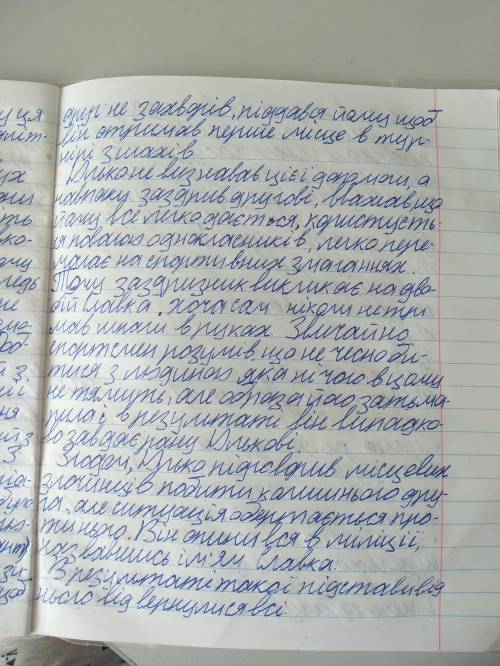 друг не захворів, піддався йому щоб
він отримав перше місце в тур-
нірі з шахів.
Юлько не визнавав цієї допомоги, а
навпаки заздрив другові, вважав що
йому все легко дається, користуєть-
ся повагою однокласників, легко пере-
магає на спортивних змаганнях.
Тому заздрісник викликає на дво-
бій Славка, хоча сам ніколи не три
мав шпаги в руках. Звичайно
спортсмен розумів, що не чесно би-
тися з людиною, яка нічого в цьому
не тямить, але образа його затьма-
рила і в результаті він випадко-
во завдає рану Юлькові.
Згодом, Юлько підговорив місцевих
злочинців побити колишнього дру-
га, але ситуація обертається про-
ти нього. Він опинився в міліції,
назвавшись ім'ям Славка.
В результаті такої підстави від
нього відвернулися всі.